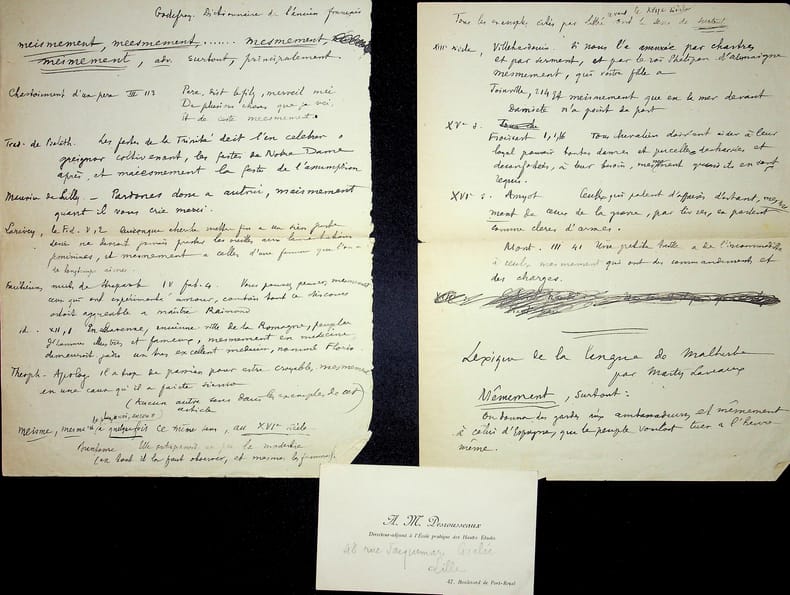 Godefroy. Dictionnaire de l'ancien français
meismement, meesmement, ...... mesmement,
mesmement, adv. surtout, principalement.
Chastoiement d'un pere III 113 Pere, dist le filz, merveil m'ei
De plusieurs choses que je vei
Et de ceste meesmement.
Trad. de Beleth. Les festes de la Trinité doit l'en celebrer o
greignor coltivement, les festes de Notre Dame
après, et maiesmement la feste de l'assumption
Maurice de Sully. — Pardones donc a autrui, maismement
quant il vous crie merci.
Larivey, le Fid. V, 2 Quiconque cherche mettre fin a un sien
feminines, et mesmement a celles d'une femme que l'on a
longtemps aimée.
nuits de Strapart. IV fab. 4. Vous pouvez penser, mesmement
ceux qui ont expérimenté amour, combien tout ce discours
estoit aggreable a maistre Raimond
id. XII, 1 En Ravenne, ancienne ville de la Romagne, peuplée
d'hommes illustres et fameux, mesmement en medecine
demeuroit jadis un tres excellent medecin, nommé Florio.
Théoph. Apolog. Il a trop de passion pour estre croyable, mesmement
en une cause qu'il a faicte sienne
(Aucun autre sens dans les exemples de cet
article)
mesme, mesmes a quelquefois ce même sens, au XVIe siècle
la modestie
(en tout il la faut observer, et mesmes les femmes)
Tous les exemples cités par Littré ont le sens de surtout
XIIIe siècle, Villehardouin. Si nous l'a
et par serment, et par le roi Phelipon d'Alemaigne
mesmement, qui vostre fille a
Joinville, 214 Et meismement que en la mer devant
Damiete n'a point de port
XVe s. Froissart I, 1, Tous chevaliers doivent aider à leur
loyal pouvoir toutes dames et pucelles
à leur besoin, mesmement quand ils en sont
requis.
XVIe s. Amyot Ceulx qui parlent d'affaires d'estat, mesme
ment de ceux de la guerre, par livres, en parlent
comme clercs d'armes.
Mont. III 41 Une
à ceulx mesmement qui ont des commandements et
des charges.
Lexique de la langue de Malherbe
par Marty Laveaux
Mêmement, surtout :
On donna des gardes aux ambassadeurs et mêmement
à celui d'Espagne, que le peuple vouloit tuer à l'heure
même.
A. M. Desrousseaux
Directeur-adjoint à l'École pratique des Hautes Études
48 rue Jacquemars Giélée
Lille
47, Boulevard de Port-Royal